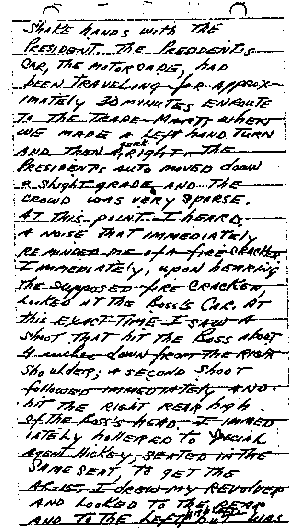 SHAKE HANDS WITH THE
PRESIDENT. THE PRESIDENTS
CAR, THE MOTORCADE, HAD
BEEN TRAVELING FOR APPROX-
IMATELY 30 MINUTES ENROUTE
TO THE TRADE-MART, WHEN
WE MADE A LEFT HAND TURN
AND THEN A RIGHT. THE
PRESIDENTS AUTO MOVED DOWN
A SLIGHT GRADE, AND THE
CROWD WAS VERY SPARSE.
AT THIS POINT I HEARD
A NOISE THAT IMMEDIATELY
REMINDED ME OF A FIRE CRACKER
IMMEDIATELY, UPON HEARING
THE SUPPOSED FIRE CRACKER,
LOOKED AT THE BOSS'S CAR. AT
THIS EXACT TIME I SAW A
SHOT THAT HIT THE BOSS ABOUT
4 INCHES DOWN FROM THE RIGHT
SHOULDER; A SECOND SHOOT
FOLLOWED IMMEDIATELY AND
HIT THE RIGHT REAR HIGH
OF THE BOSS'S HEAD. I IMMED
IATELY HOLLERED TO SPECIAL
AGENT HICKEY, SEATED IN THE
SAME SEAT, TO GET THE
AR-15. I DREW MY REVOLVER
AND LOOKED TO THE REAR
AND TO THE LEFT WAS